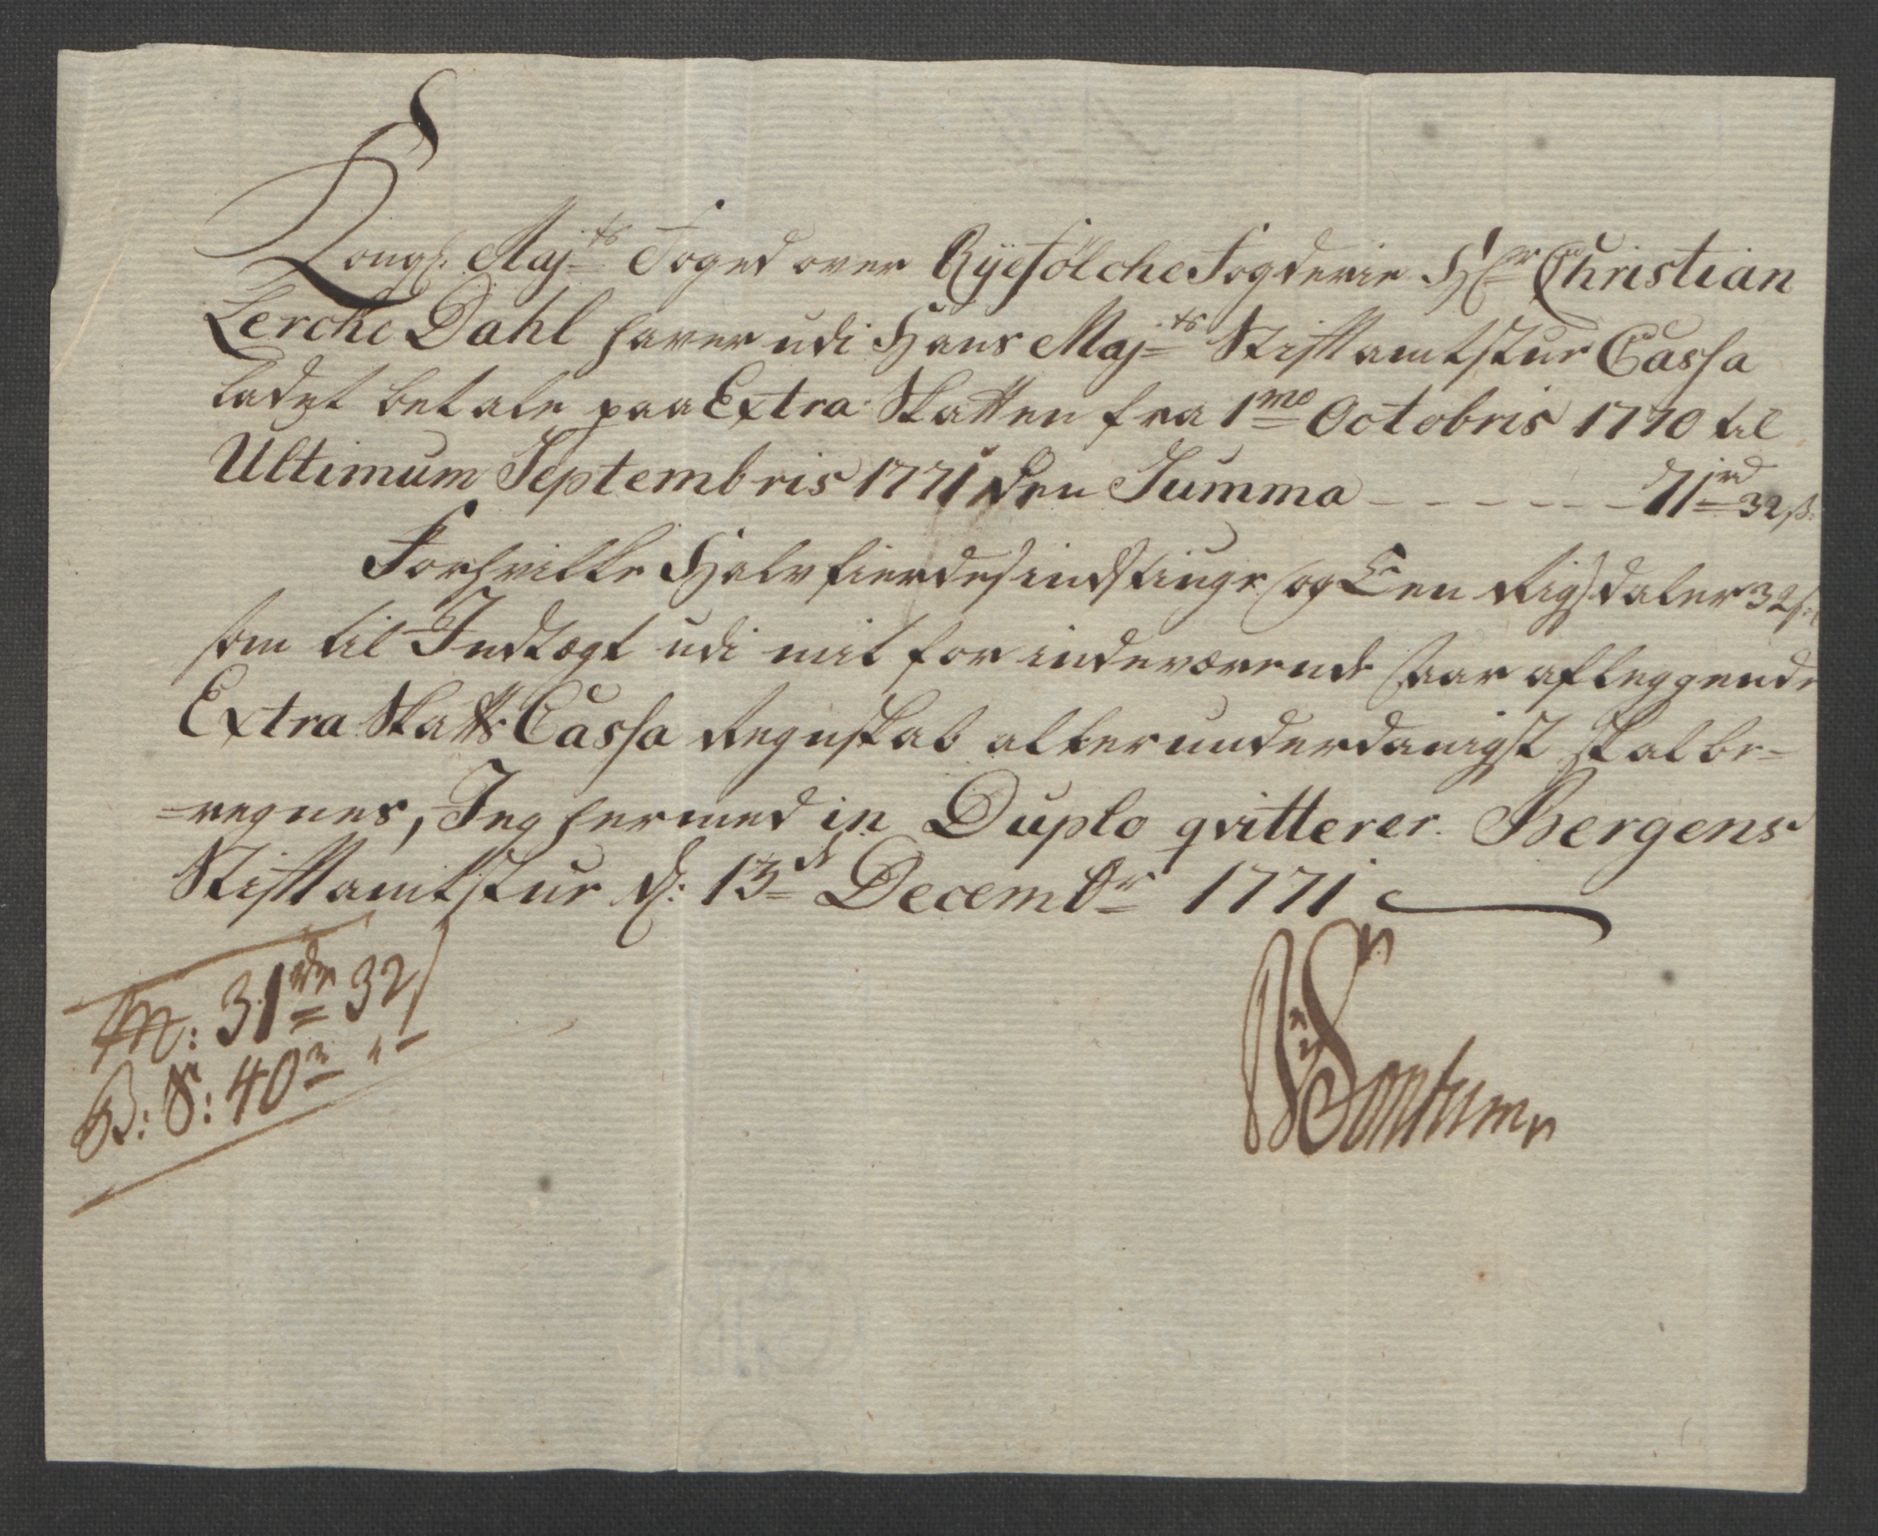 Kongl: Maj:ts Foged over Ryefølche Fogderie Hr Christian
Lerche Dahl haver udi Hans Maj:ts Stiftamtstur Cassa
ladet betale paa Extra Skatten fra 1mo Octobris 1770 til
Ultimum Septembris 1771 den Summa - - - - - - 71rd 32s:
Forhvilke Halvfierdesindstiuge og Een Rigsdaler 32s:
som til Indtægt udi mit for indeværende Aar afleggende
Extra Skatts Cassa Regnskab allerunderdanigst skal be-
-regnes, Jeg hermed in Duplo qvitterer. Bergens
Stiftamtstur d: 13d Decembr 1771
M: 31rdr 32s
B: S: 40r " -
Sontumn